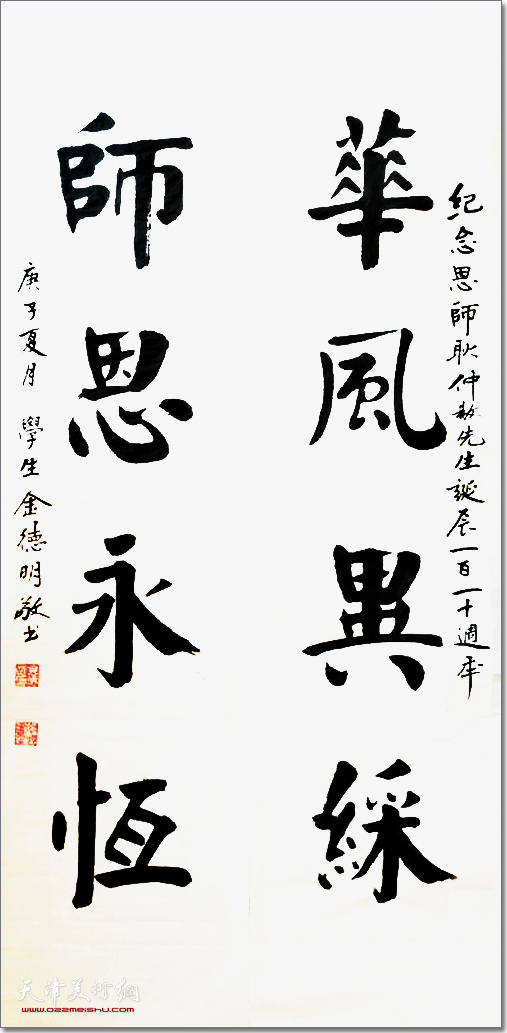 紀念恩師耿仲敭先生誕辰一百一十週年
華風異綵
師恩永恆
庚子夏月 學生金德明敬书
天津美術網
www.022meishu.com